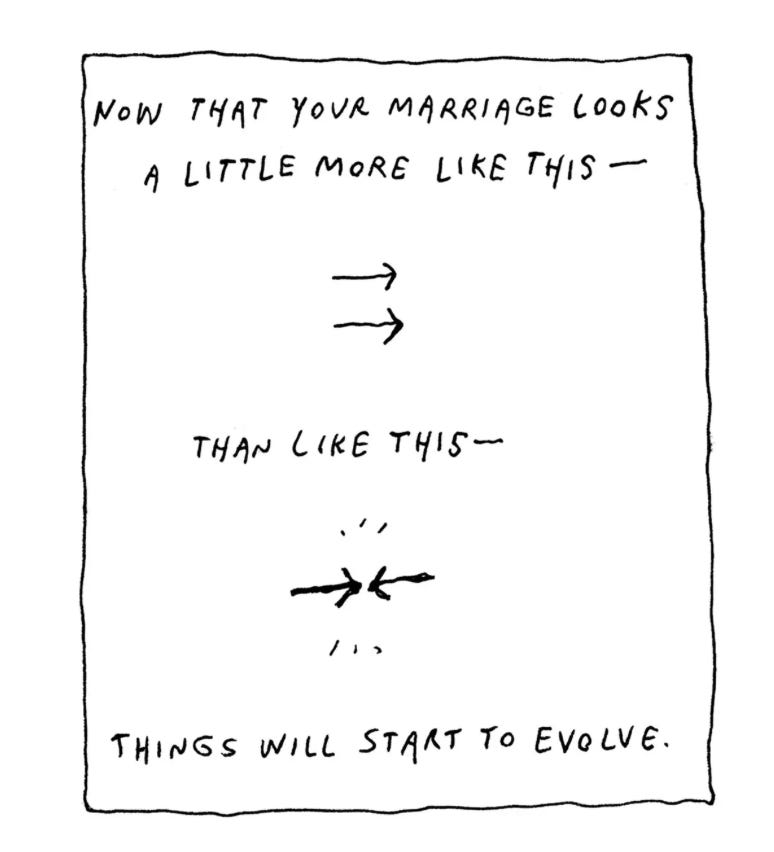 NOW THAT YOUR MARRIAGE LOOKS
A LITTLE MORE LIKE THIS —
THAN LIKE THIS —
THINGS WILL START TO EVOLVE.